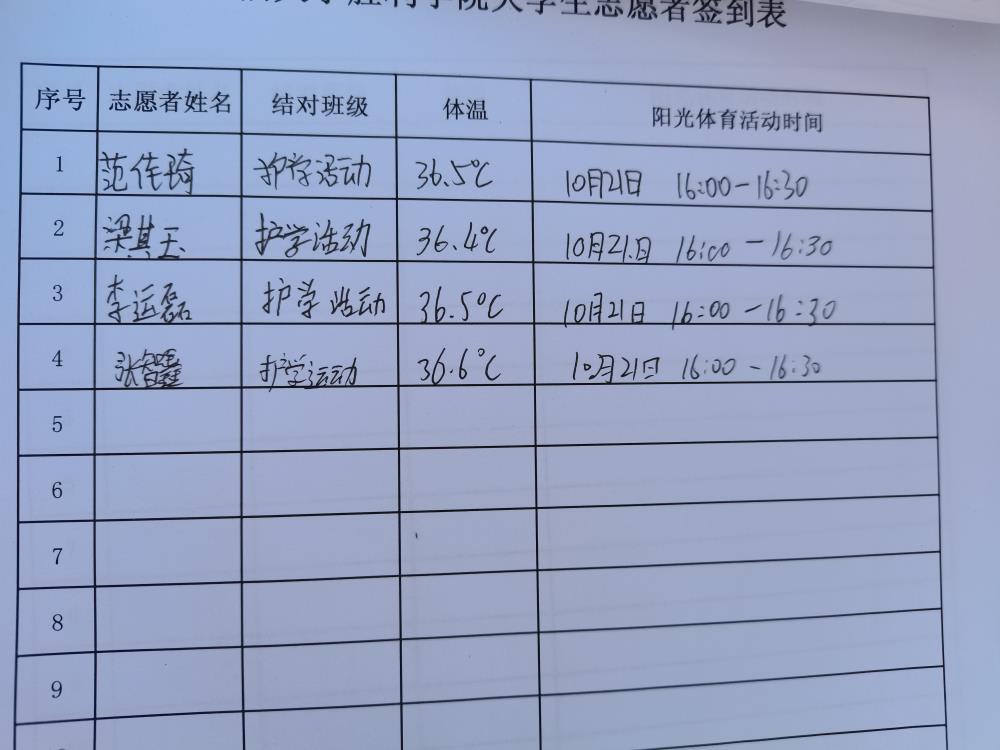 胜利学院大学生志愿者签到表
序号 志愿者姓名 结对班级 体温 阳光体育活动时间
1 范作琦 护学活动 36.5℃ 10月21日 16:00-16:30
2 梁其玉 护学活动 36.4℃ 10月21日 16:00-16:30
3 李运磊 护学活动 36.5℃ 10月21日 16:00-16:30
4 张智鑫 护学运动 36.6℃ 10月21日 16:00-16:30
5
6
7
8
9